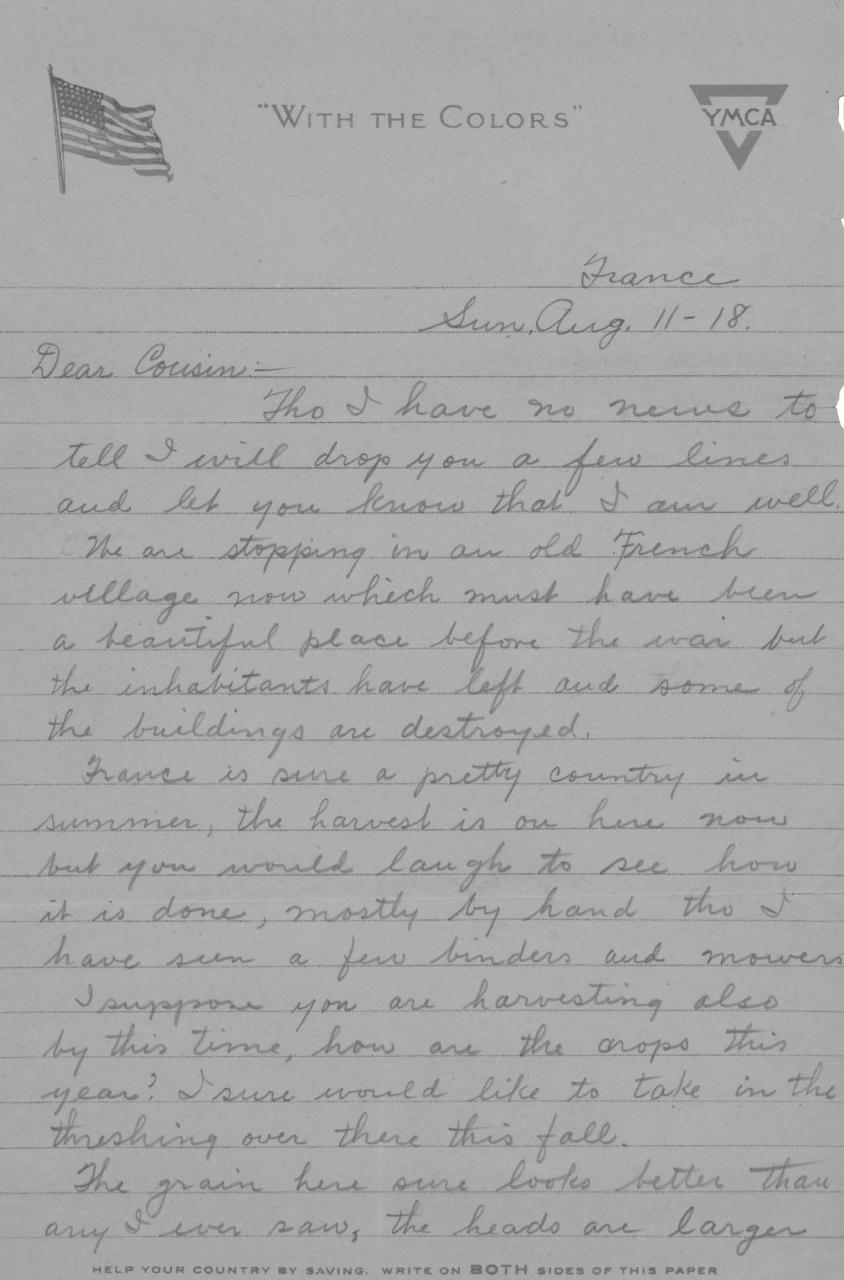 "WITH THE COLORS"
YMCA
France
Sun. Aug. 11-18.
Dear Cousin:—
Tho I have no news to
tell I will drop you a few lines
and let you know that I am well.
We are stopping in an old French
village now which must have been
a beautiful place before the war but
the inhabitants have left and some of
the buildings are destroyed.
France is sure a pretty country in
summer, the harvest is on here now
but you would laugh to see how
it is done, mostly by hand tho I
have seen a few binders and mowers
I suppose you are harvesting also
by this time, how are the crops this
year? I sure would like to take in the
threshing over there this fall.
The grain here sure looks better than
any I ever saw, the heads are larger
HELP YOUR COUNTRY BY SAVING. WRITE ON BOTH SIDES OF THIS PAPER